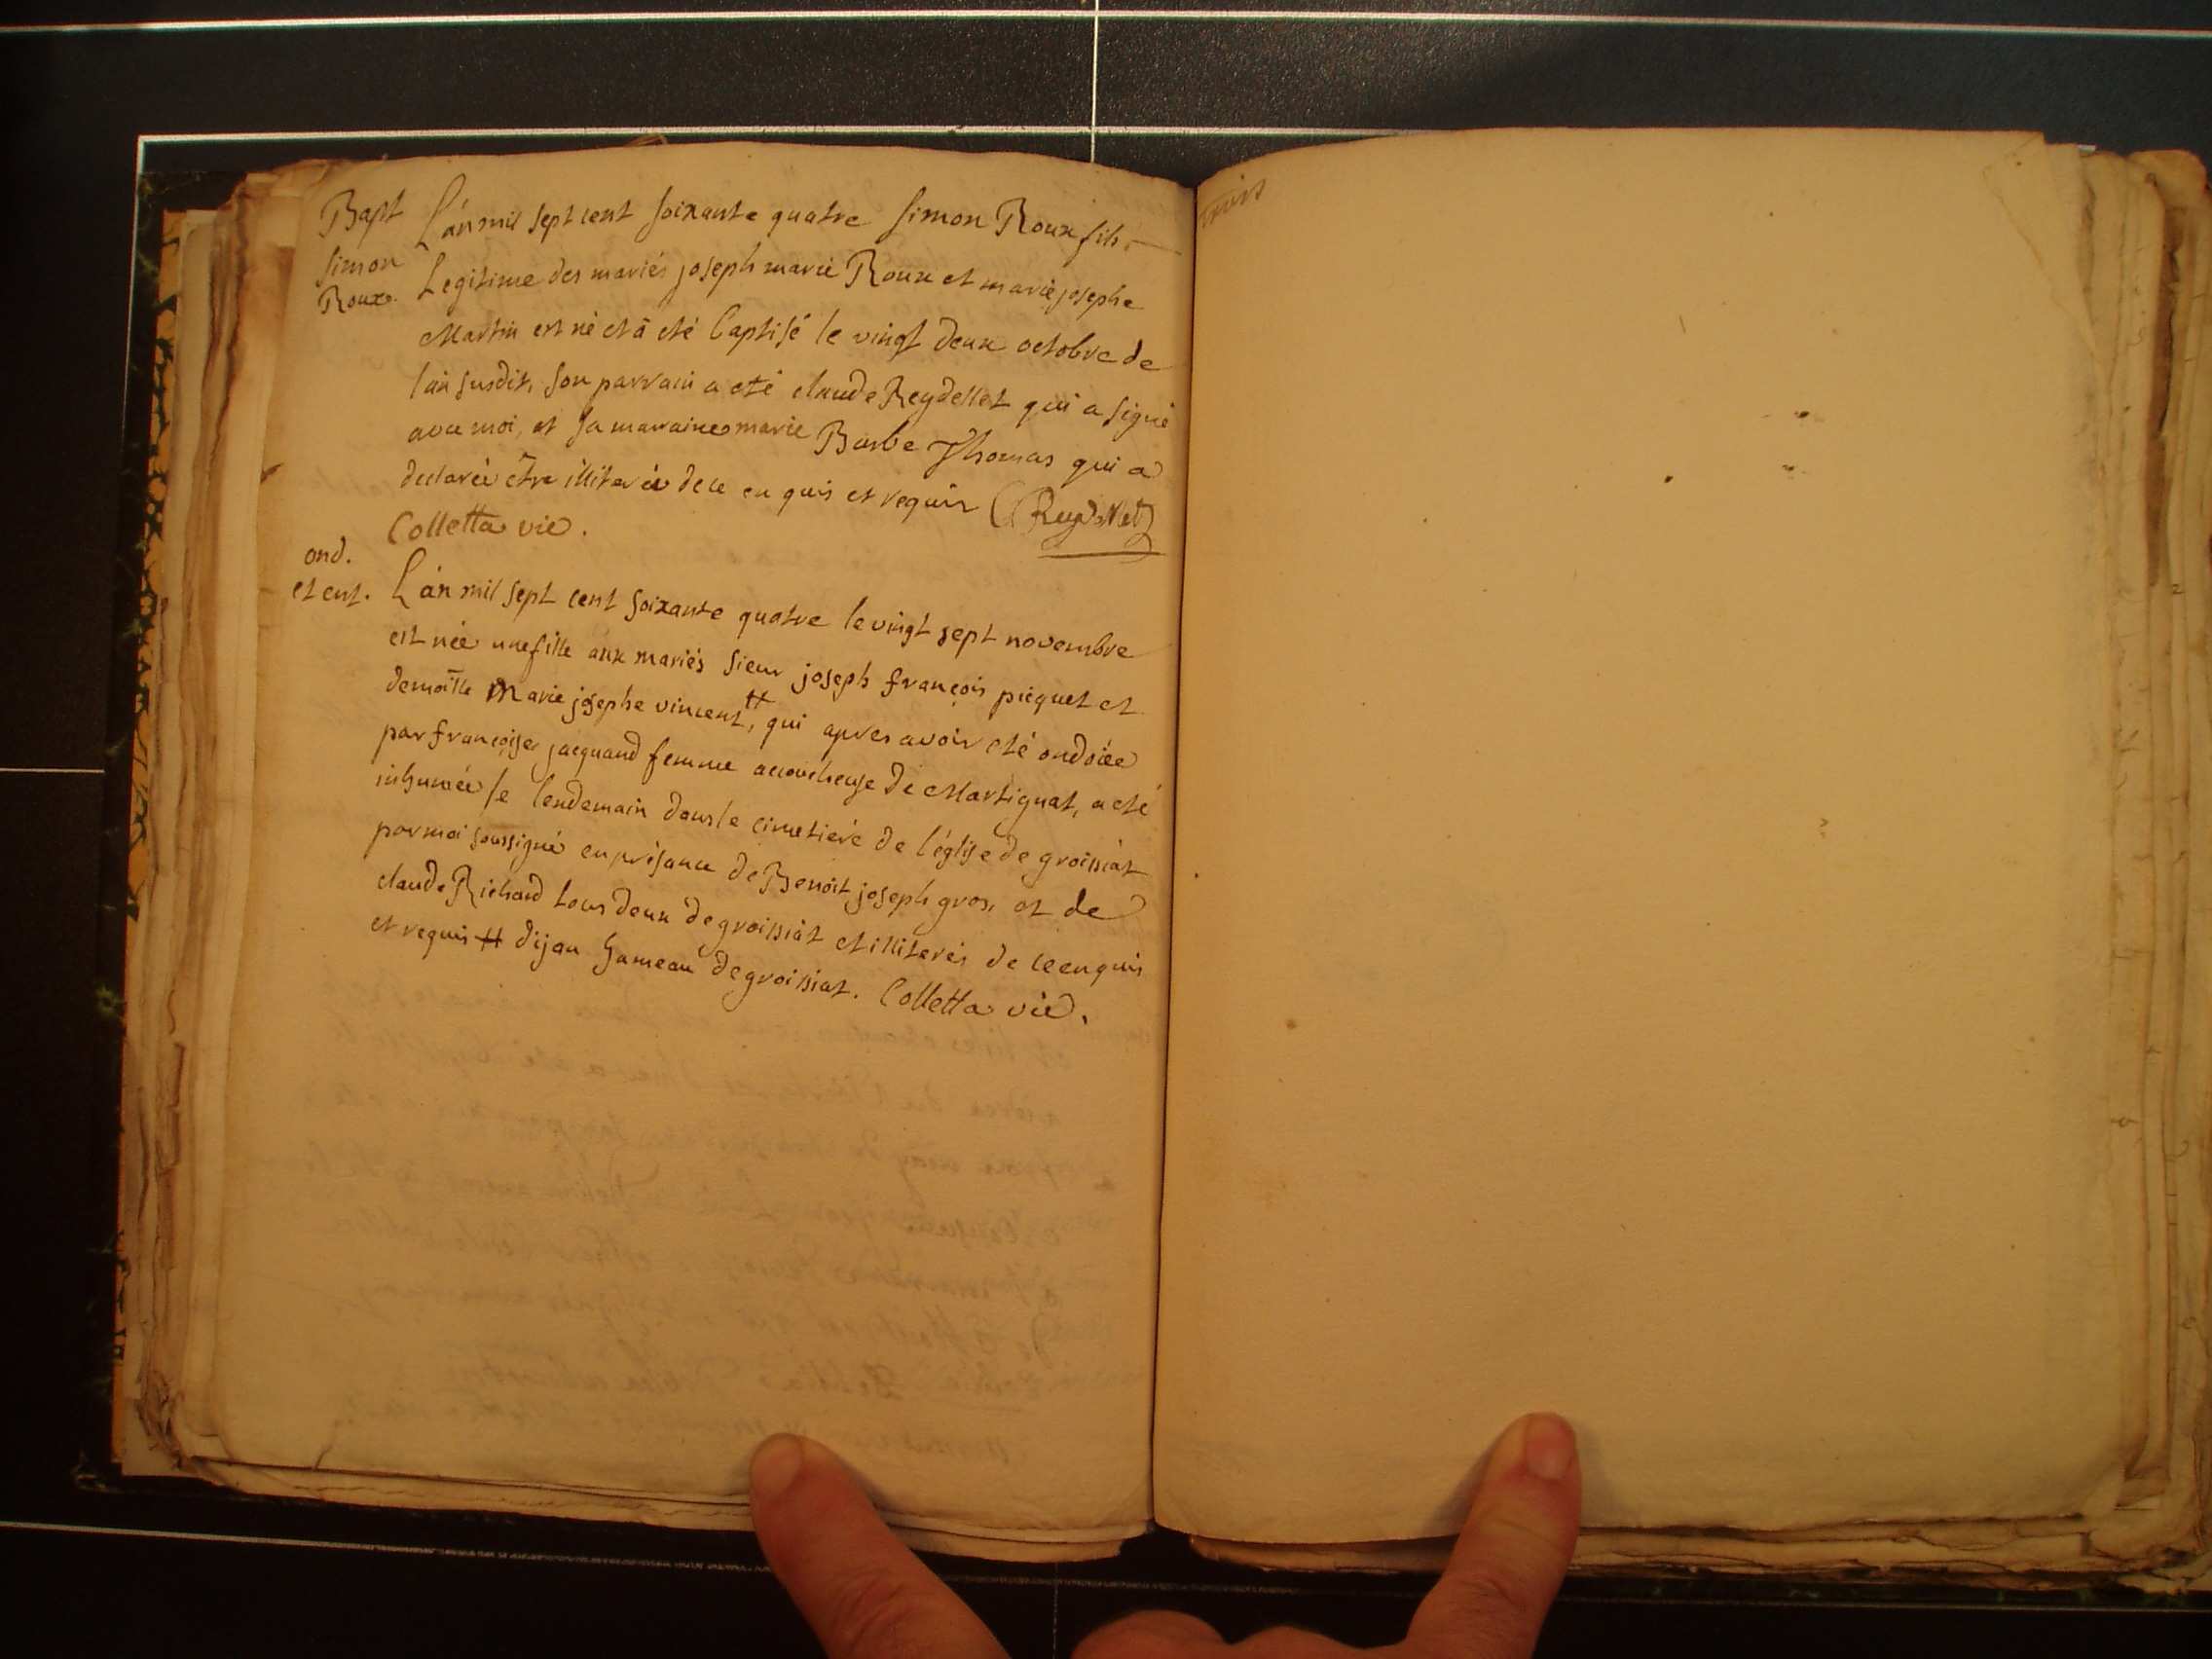 Bapt
Simon
Roux.
L'an mil sept cent soixante quatre simon Roux fils
Legitime des mariés joseph marie Roux et marie josephe
Martin est né et à eté baptisé le vingt deux octobre de
l'an susdit, son parrain a eté claude Reydellet qui a signé
avec moi, et sa marraine marie Barbe Thomas qui a
declarée être illiterée de ce enquis et requis Reydellet
Colletta vic.
ond.
et ent.
L'an mil sept cent soixante quatre le vingt sept novembre
est née une fille aux mariés sieur joseph françois picquet et
demoille Marie josephe vincent #, qui apres avoir eté ondoiée
par françoise jacquand femme accoucheuse de Martignat, a eté
inhumée le lendemain dans le cimetiere de l'église de groissiat
par moi soussigné en présance de Benoit joseph gros, et de
claude Richard tous deux de groissiat et illiterés de ce enquis
et requis # dijan hameau de groissiat. Colletta vic.